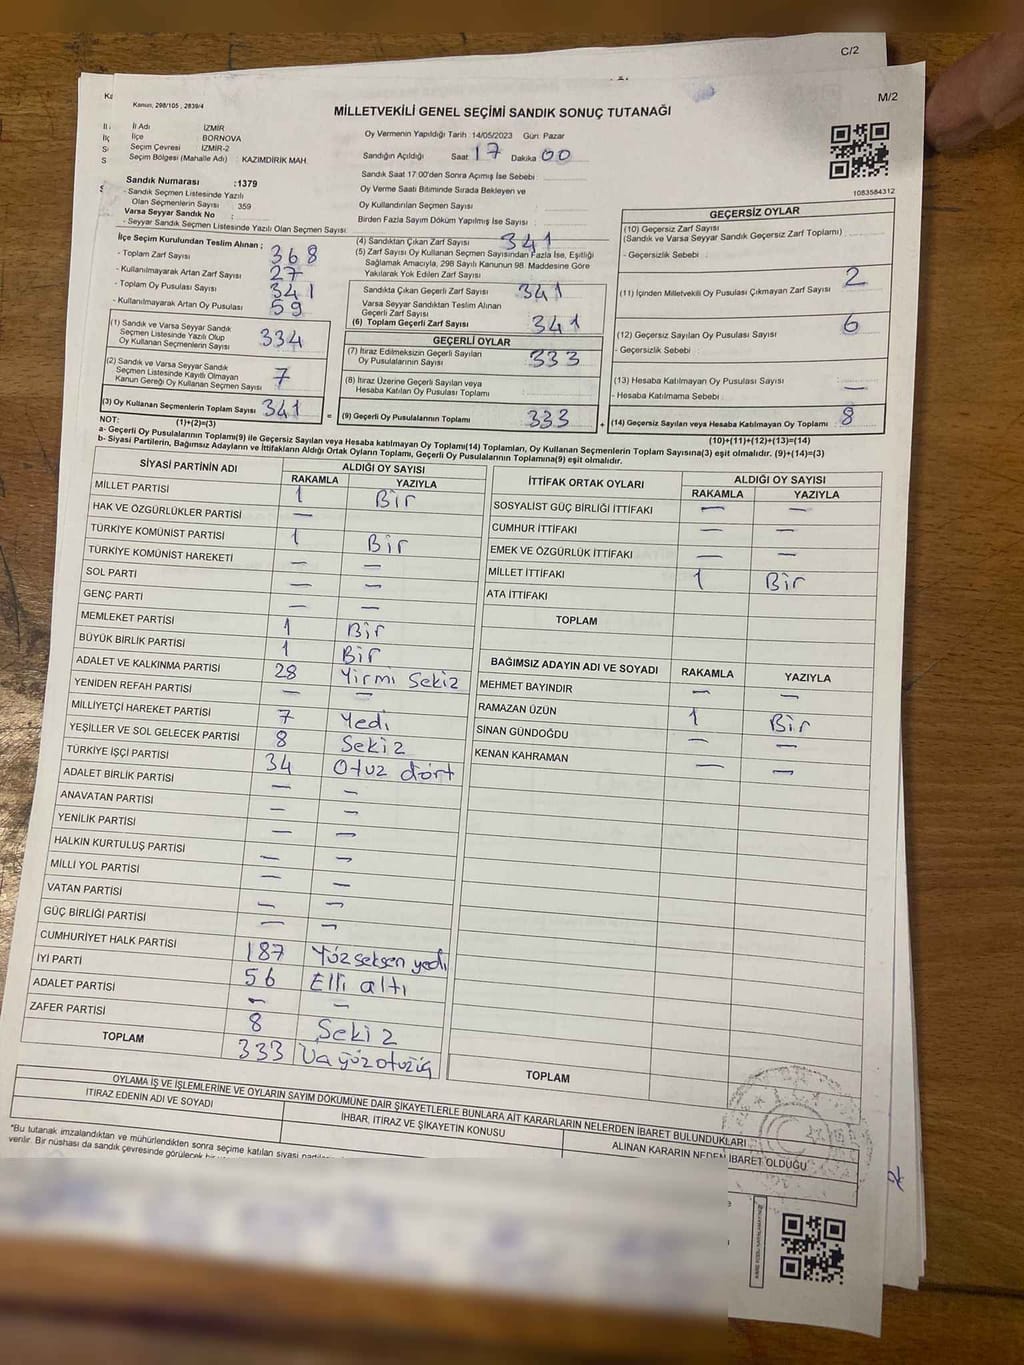 C/2
M/2
Kanun, 298/105 , 2839/4
MİLLETVEKİLİ GENEL SEÇİMİ SANDIK SONUÇ TUTANAĞI
İl Adı İZMİR
İlçe BORNOVA
Seçim Çevresi İZMİR-2
Seçim Bölgesi (Mahalle Adı) KAZIMDİRİK MAH.
Oy Vermenin Yapıldığı Tarih 14/05/2023 Gün: Pazar
Sandığın Açıldığı Saat 17 Dakika 00
Sandık Saat 17:00'den Sonra Açımış İse Sebebi :
Oy Verme Saati Bitiminde Sırada Bekleyen ve
Oy Kullandırılan Seçmen Sayısı :
Birden Fazla Sayım Döküm Yapılmış İse Sayısı :
1083584312
Sandık Numarası :1379
- Sandık Seçmen Listesinde Yazılı
Olan Seçmenlerin Sayısı : 359
Varsa Seyyar Sandık No :
- Seyyar Sandık Seçmen Listesinde Yazılı Olan Seçmen Sayısı
İlçe Seçim Kurulundan Teslim Alınan ;
- Toplam Zarf Sayısı 368
- Kullanılmayarak Artan Zarf Sayısı 27
- Toplam Oy Pusulası Sayısı 341
- Kullanılmayarak Artan Oy Pusulası 59
(1) Sandık ve Varsa Seyyar Sandık
Seçmen Listesinde Yazılı Olup
Oy Kullanan Seçmenlerin Sayısı 334
(2) Sandık ve Varsa Seyyar Sandık
Seçmen Listesinde Kayıtlı Olmayan
Kanun Gereği Oy Kullanan Seçmen Sayısı 7
(3) Oy Kullanan Seçmenlerin Toplam Sayısı 341
(1)+(2)=(3)
(4) Sandıktan Çıkan Zarf Sayısı 341
(5) Zarf Sayısı Oy Kullanan Seçmen Sayısından Fazla İse, Eşitliği
Sağlamak Amacıyla, 298 Sayılı Kanunun 98. Maddesine Göre
Yakılarak Yok Edilen Zarf Sayısı
Sandıkta Çıkan Geçerli Zarf Sayısı 341
Varsa Seyyar Sandıktan Teslim Alınan
Geçerli Zarf Sayısı
(6) Toplam Geçerli Zarf Sayısı 341
GEÇERLİ OYLAR
(7) İtiraz Edilmeksizin Geçerli Sayılan
Oy Pusulalarının Sayısı 333
(8) İtiraz Üzerine Geçerli Sayılan veya
Hesaba Katılan Oy Pusulası Toplamı
= (9) Geçerli Oy Pusulalarının Toplamı 333
GEÇERSİZ OYLAR
(10) Geçersiz Zarf Sayısı
(Sandık ve Varsa Seyyar Sandık Geçersiz Zarf Toplamı)
- Geçersizlik Sebebi :
(11) İçinden Milletvekili Oy Pusulası Çıkmayan Zarf Sayısı 2
(12) Geçersiz Sayılan Oy Pusulası Sayısı 6
- Geçersizlik Sebebi :
(13) Hesaba Katılmayan Oy Pusulası Sayısı —
- Hesaba Katılmama Sebebi :
+ (14) Geçersiz Sayılan veya Hesaba Katılmayan Oy Toplamı 8
(10)+(11)+(12)+(13)=(14)
NOT:
a- Geçerli Oy Pusulalarının Toplamı(9) ile Geçersiz Sayılan veya Hesaba katılmayan Oy Toplamı(14) Toplamları, Oy Kullanan Seçmenlerin Toplam Sayısına(3) eşit olmalıdır. (9)+(14)=(3)
b- Siyasi Partilerin, Bağımsız Adayların ve İttifakların Aldığı Ortak Oyların Toplamı, Geçerli Oy Pusulalarının Toplamına(9) eşit olmalıdır.
SİYASİ PARTİNİN ADI ALDIĞI OY SAYISI
RAKAMLA YAZIYLA
MİLLET PARTİSİ 1 Bir
HAK VE ÖZGÜRLÜKLER PARTİSİ —
TÜRKİYE KOMÜNİST PARTİSİ 1 Bir
TÜRKİYE KOMÜNİST HAREKETİ — —
SOL PARTİ — —
GENÇ PARTİ — —
MEMLEKET PARTİSİ 1 Bir
BÜYÜK BİRLİK PARTİSİ 1 Bir
ADALET VE KALKINMA PARTİSİ 28 Yirmi Sekiz
YENİDEN REFAH PARTİSİ — —
MİLLİYETÇİ HAREKET PARTİSİ 7 Yedi
YEŞİLLER VE SOL GELECEK PARTİSİ 8 Sekiz
TÜRKİYE İŞÇİ PARTİSİ 34 Otuz dört
ADALET BİRLİK PARTİSİ — —
ANAVATAN PARTİSİ — —
YENİLİK PARTİSİ — —
HALKIN KURTULUŞ PARTİSİ — —
MİLLİ YOL PARTİSİ — —
VATAN PARTİSİ — —
GÜÇ BİRLİĞİ PARTİSİ — —
CUMHURİYET HALK PARTİSİ 187 Yüz seksen yedi
İYİ PARTİ 56 Elli altı
ADALET PARTİSİ — —
ZAFER PARTİSİ 8 Sekiz
TOPLAM 333
İTTİFAK ORTAK OYLARI ALDIĞI OY SAYISI
RAKAMLA YAZIYLA
SOSYALİST GÜÇ BİRLİĞİ İTTİFAKI — —
CUMHUR İTTİFAKI — —
EMEK VE ÖZGÜRLÜK İTTİFAKI — —
MİLLET İTTİFAKI 1 Bir
ATA İTTİFAKI
TOPLAM
BAĞIMSIZ ADAYIN ADI VE SOYADI RAKAMLA YAZIYLA
MEHMET BAYINDIR — —
RAMAZAN ÜZÜN 1 Bir
SİNAN GÜNDOĞDU — —
KENAN KAHRAMAN — —
TOPLAM
OYLAMA İŞ VE İŞLEMLERİNE VE OYLARIN SAYIM DÖKÜMÜNE DAİR ŞİKAYETLERLE BUNLARA AİT KARARLARIN NELERDEN İBARET BULUNDUKLARI
İTİRAZ EDENİN ADI VE SOYADI İHBAR, İTİRAZ VE ŞİKAYETİN KONUSU ALINAN KARARIN NEDEN İBARET OLDUĞU
"Bu tutanak imzalandıktan ve mühürlendikten sonra seçime katılan siyasi
verilir. Bir nüshası da sandık çevresinde görülecek